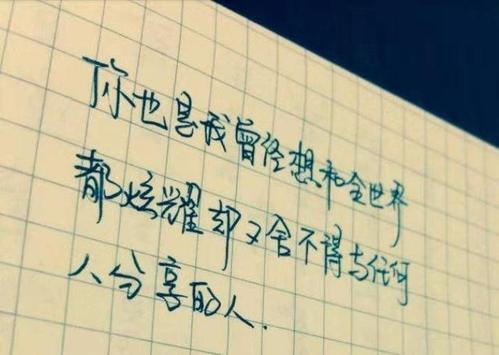 你也是我曾经想和全世界
都炫耀却又舍不得与任何
人分享的人.